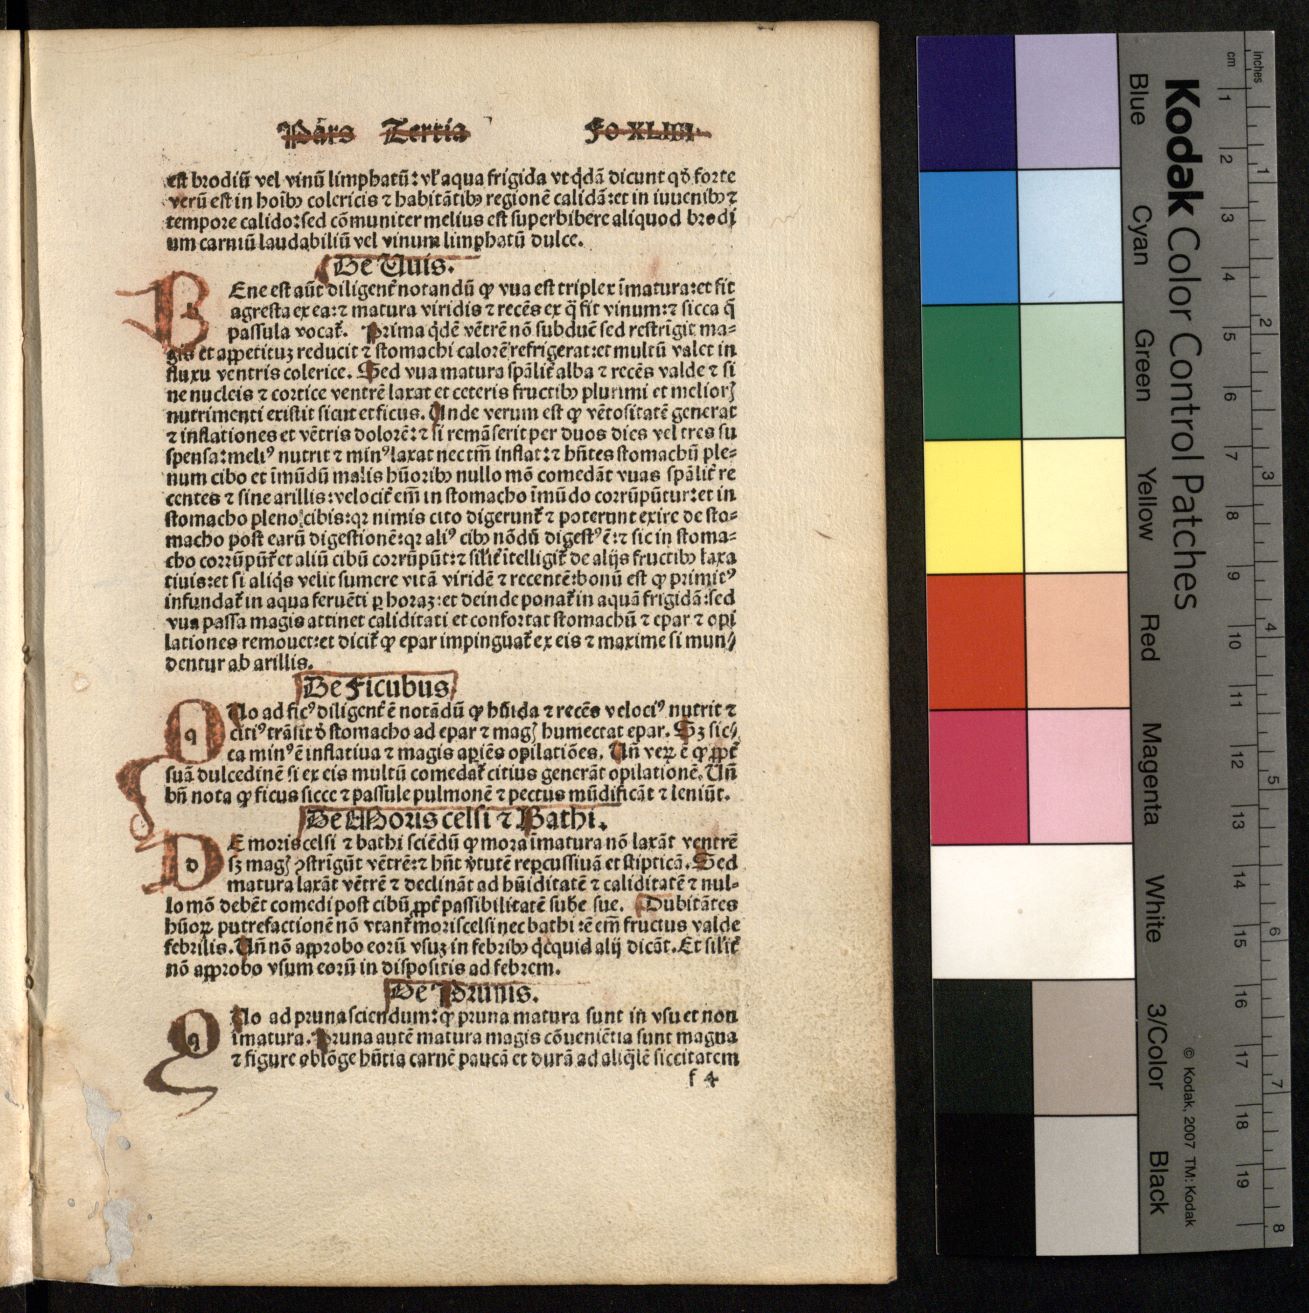 Pars Tertia FO XLIIII
est brodiū vel vinū limphatū: vl' aqua frigida vt q̇dā dicunt qd̄ forte
verū est in hoībꝰ colericis ⁊ habitātibꝰ regionē calidā: et in iuuenibꝰ ⁊
tempore calido: sed cōmuniter melius est superbibere aliquod brodi
um carniū laudabiliū vel vinum limphatū dulce.
De Uuis.
BEne est aūt diligent̄ notandū ꝙ vua est triplex īmatura: et fit
agresta ex ea: ⁊ matura viridis ⁊ recēs ex q̄ fit vinum: ⁊ sicca q̄
passula vocat̄. Prima q̇dē vētrē nō subducē sed restrīgit ma-
gis et appetituꝫ reducit ⁊ stomachi calorē refrigerat: et multū valet in
fluxu ventris colerice. Sed vua matura spālit̄ alba ⁊ recēs valde ⁊ si
ne nucleis ⁊ cortice ventrē laxat et ceteris fructibꝰ plurimi et melioꝝ
nutrimenti existit sicut et ficus. Unde verum est ꝙ vētositatē generat
⁊ inflationes et vētris dolorē: ⁊ si remāserit per duos dies vel tres su
spensa: meliꝰ nutrit ⁊ minꝰ laxat nec tm̄ inflat: ⁊ hn̄tes stomachū ple-
num cibo et īmūdū malis hūoribꝰ nullo mō comedāt vuas spālit̄ re
centes ⁊ sine arillis: velocit̄ em̄ in stomacho īmūdo corrūpūtur: et in
stomacho pleno cibis: qꝛ nimis cito digerunt̄ ⁊ poterunt exire de sto-
macho post earū digestionē: qꝛ aliꝰ cibꝰ nōdū digestꝰ ē: ⁊ sic in stoma-
cho corrūpūt̄ et aliū cibū corrūpūt: ⁊ silit̄ ītelligit̄ de alijs fructibꝰ laxa
tiuis: et si aliq̇s velit sumere vuā viridē ⁊ recentē: bonū est ꝙ primitꝰ
infundat̄ in aqua feruēti ꝑ horaꝫ: et deinde ponat̄ in aquā frigidā: sed
vua passa magis attinet caliditati et confortat stomachū ⁊ epar ⁊ opi
lationes remouet: et dicit̄ ꝙ epar impinguat̄ ex eis ⁊ maxime si mun-
dentur ab arillis.
De Ficubus
QUo ad ficꝰ diligent̄ ē notādū ꝙ hūida ⁊ recēs velociꝰ nutrit ⁊
citiꝰ trāsit d̄ stomacho ad epar ⁊ magꝭ humectat epar. Sꝫ sic-
ca minꝰ ē inflatiua ⁊ magis apiēs opilatiōes. Un̄ veꝝ ē ꝙ ꝓpt̄
suā dulcedinē si ex eis multū comedat̄ citius generāt opilationē. Un̄
bn̄ nota ꝙ ficus sicce ⁊ passule pulmonē ⁊ pectus mūdificāt ⁊ leniūt.
De Moris celsi ⁊ Bathi.
DE moris celsi ⁊ bathi sciēdū ꝙ mora īmatura nō laxāt ventrē
sꝫ magꝭ ꝯstrīgūt vētrē: ⁊ hn̄t v̓tutē repercussiuā et stipticā. Sed
matura laxāt vētrē ⁊ declināt ad hūiditatē ⁊ caliditatē ⁊ nul-
lo mō debēt comedi post cibū ꝓpt̄ passibilitatē sube sue. Dubitātes
hūoꝝ putrefactionē nō vtant̄ moris celsi nec bathi: ē em̄ fructus valde
febrilis. Un̄ nō approbo eorū vsuꝫ in febribꝰ q̇cquid alij dicāt. Et silit̄
nō approbo vsum eorū in dispositis ad febrem.
De Prunis.
QUo ad pruna sciendum: ꝙ pruna matura sunt in vsu et non
īmatura. Pruna autē matura magis cōueniētia sunt magna
⁊ figure oblōge hn̄tia carnē paucā et durā ad aliq̄lē siccitatem
f 4
Kodak Color Control Patches
Blue
Cyan
Green
Yellow
Red
Magenta
White
3/Color
Black
© Kodak, 2007 TM: Kodak
cm 1 2 3 4 5 6 7 8 9 10 11 12 13 14 15 16 17 18 19
inches 1 2 3 4 5 6 7 8